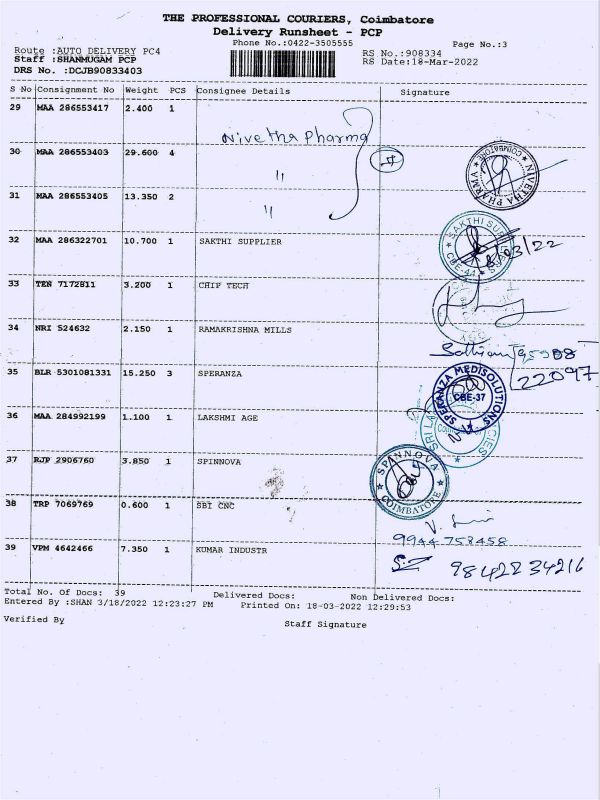 THE PROFESSIONAL COURIERS, Coimbatore
Delivery Runsheet - PCP
Phone No.:0422-3505555
Page No.:3
Route :AUTO DELIVERY PC4
RS No.:908334
Staff :SHANMUGAM PCP
RS Date:18-Mar-2022
DRS No. :DCJB90833403
S No Consignment No Weight PCS Consignee Details Signature
29 MAA 286553417 2.400 1
Nivetha Pharma
30 MAA 286553403 29.600 4 "
NIVETHA PHARMA * COIMBATORE *
31 MAA 286553405 13.350 2 "
32 MAA 286322701 10.700 1 SAKTHI SUPPLIER
SAKTHI SUP
CBE-44
33 TEN 7172811 3.200 1 CHIP TECH
34 NRI 524632 2.150 1 RAMAKRISHNA MILLS
22097
35 BLR 5301081331 15.250 3 SPERANZA
SPERANZA MEDISOLUTIONS
CBE-37
36 MAA 284992199 1.100 1 LAKSHMI AGE
37 RJP 2906760 3.850 1 SPINNOVA
SPINNOVA
COIMBATORE
38 TRP 7069769 0.600 1 SBI CNC
9944758458
39 VPM 4642466 7.350 1 KUMAR INDUSTR
9842234216
Total No. Of Docs: 39 Delivered Docs: Non Delivered Docs:
Entered By :SHAN 3/18/2022 12:23:27 PM Printed On: 18-03-2022 12:29:53
Verified By Staff Signature